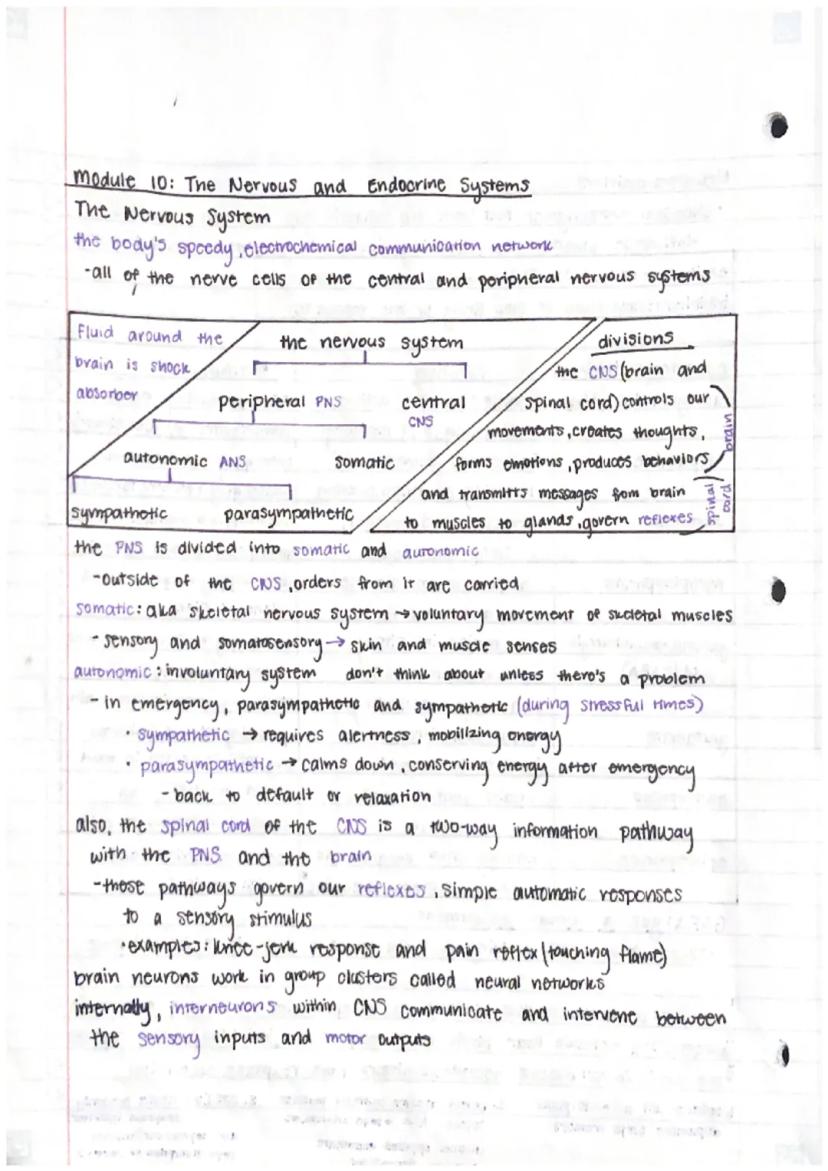 Module 10: The Nervous and Endocrine Systems
The Nervous System
the body's speedy, electrochemical communication network
-all of the nerve cells of the central and peripheral nervous systems
Fluid around the
brain is shock
absorber
the nervous system
peripheral PNS
central
CNS
autonomic ANS
somatic
sympathetic
parasympathetic
divisions
the CNS (brain and
spinal cord) controls our
movements, creates thoughts,
forms emotions, produces behaviors
and transmitts messages from brain
to muscles to glands, govern reflexes
brain
spinal
cord
the PNS is divided into somatic and autonomic
-outside of the CNS, orders from it are carried
somatic: aka skeletal nervous system → voluntary movement of skeletal muscles
- sensory and somatosensory → skin and muscle senses
autonomic: involuntary system don't think about unless there's a problem
- in emergency, parasympathetic and sympathetic (during stressful times)
• sympathetic → requires alertness, mobilizing energy
• parasympathetic → calms down, conserving energy after emergency
- back to default or relaxation
also, the spinal cord of the CNS is a two-way information pathway
with the PNS and the brain
-these pathways govern our reflexes, simple automatic responses
to a sensory stimulus
• examples: knee-jerk response and pain reflex (touching flame)
brain neurons work in group clusters called neural networks
internally, interneurons within CNS communicate and intervene between
the sensory inputs and motor outputs